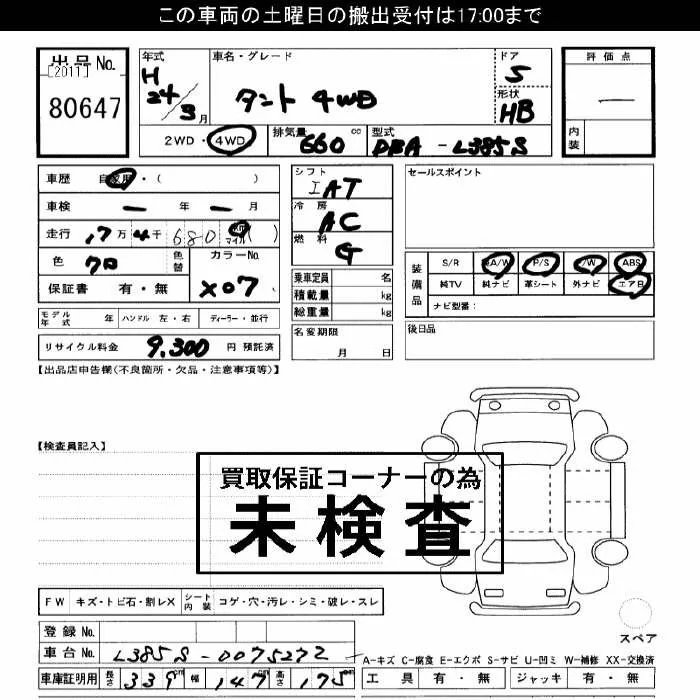 この車両の土曜日の搬出受付は17:00まで
出品No. [2011] 80647
年式 H 24/3月
車名・グレード タント 4WD
ドア 5
形状 HB
評価点 —
内装
2WD・4WD 排気量 660 cc 型式 DBA-L385S
車歴 自家用・( )
車検 — 年 — 月
走行 17万4千680 マイル ( )
色 クロ 色替 カラーNo. X07
保証書 有・無
モデル年式 年 ハンドル 左・右 ディーラー・並行
リサイクル料金 9,300 円 預託済
シフト IAT
冷房 AC
燃料 G
乗車定員 名
積載量 kg
総重量 kg
名変期限 月 日
セールスポイント
装備品 S/R A/W P/S P/W ABS
純TV 純ナビ 革シート 外ナビ エアB
ナビ型番:
後日品
【出品店申告欄(不良箇所・欠品・注意事項等)】
【検査員記入】
買取保証コーナーの為
未検査
FW キズ・トビ石・割レX シート内装 コゲ・穴・汚レ・シミ・破レ・スレ
スペア
登録No.
車台No. L385S-0075272
車庫証明用 長さ 339cm 幅 147cm 高さ 175cm
A-キズ C-腐食 E-エクボ S-サビ U-凹ミ W-補修 XX-交換済
工具 有・無 ジャッキ 有・無